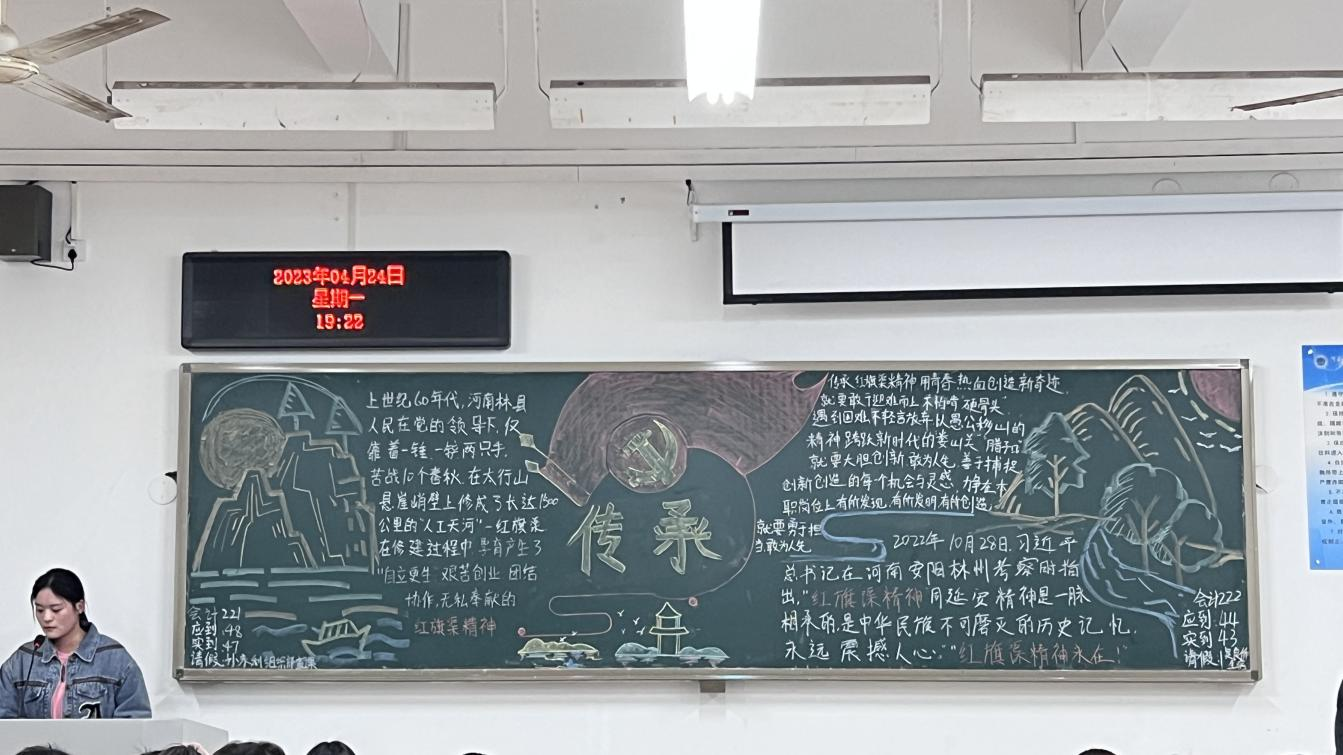 2023年04月24日
星期一
19:22
上世纪60年代,河南林县
人民在党的领导下,仅
靠着一锤一钎两只手,
苦战10个春秋,在太行山
悬崖峭壁上修成了长达1500
公里的"人工天河"-红旗渠
在修建过程中孕育产生了
"自立更生 艰苦创业 团结
协作,无私奉献的
红旗渠精神
会计221
应到:48
实到:47
请假:
传承
传承红旗渠精神用青春热血创造新奇迹
就要敢于迎难而上不怕啃硬骨头
遇到困难不轻言放弃从愚公移山的
精神跨跃新时代的娄山关"腊子口"
就要大胆创新敢为人先 善于捕捉
创新创造的每个机会与灵感 力争在本
职岗位上有所发现,有所发明有所创造;
就要勇于担
当,敢为人先
2022年10月28日,习近平
总书记在河南安阳林州考察时指
出,"红旗渠精神同延安精神是一脉
相承的,是中华民族不可磨灭的历史记忆,
永远震撼人心。"红旗渠精神永在!"
会计222
应到:44
实到:43
请假:1